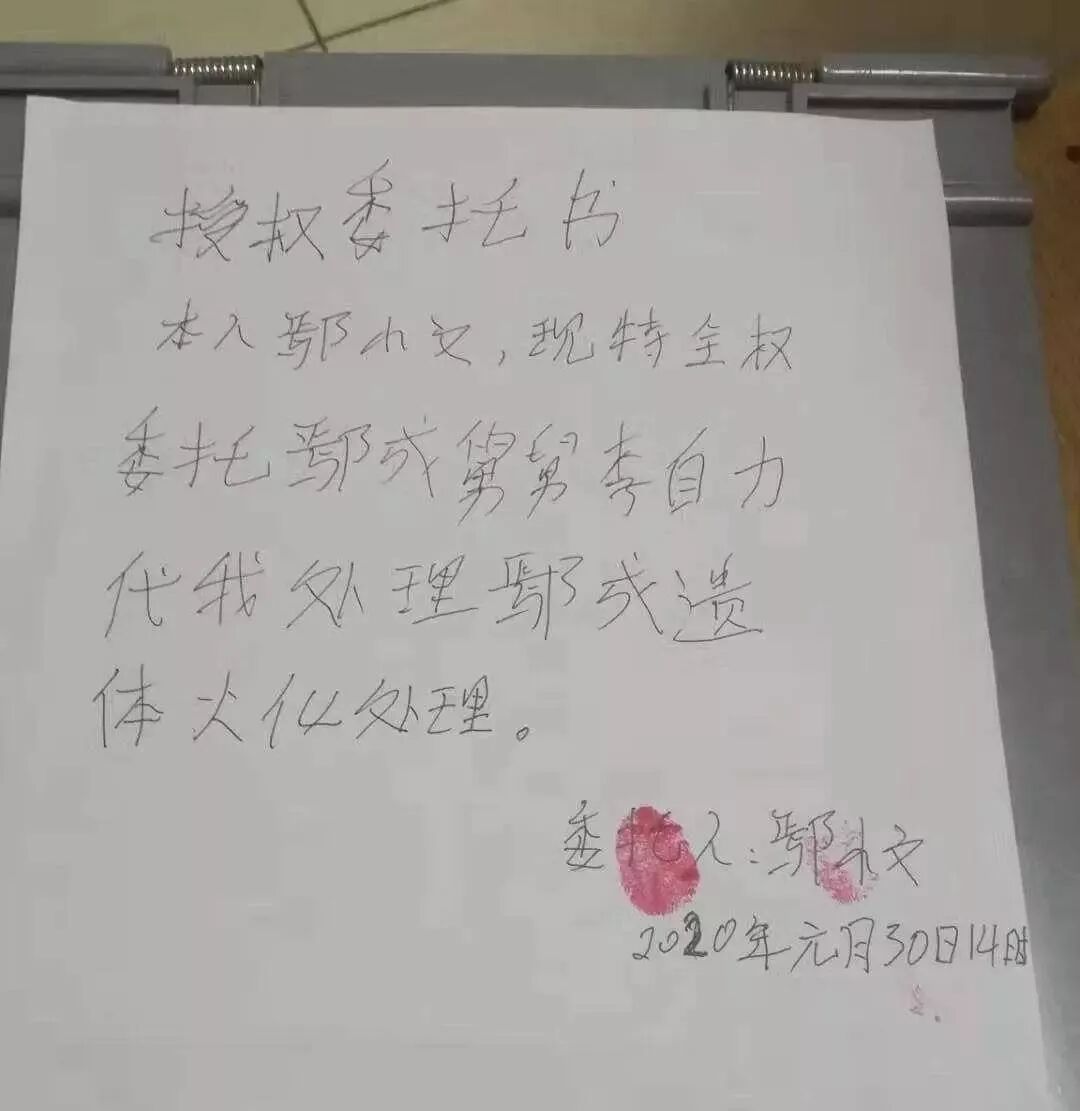 授权委托书
本人鄢小文，现特全权
委托鄢成舅舅李自力
代我处理鄢成遗
体火化处理。
委托人：鄢小文
2020年元月30日14时